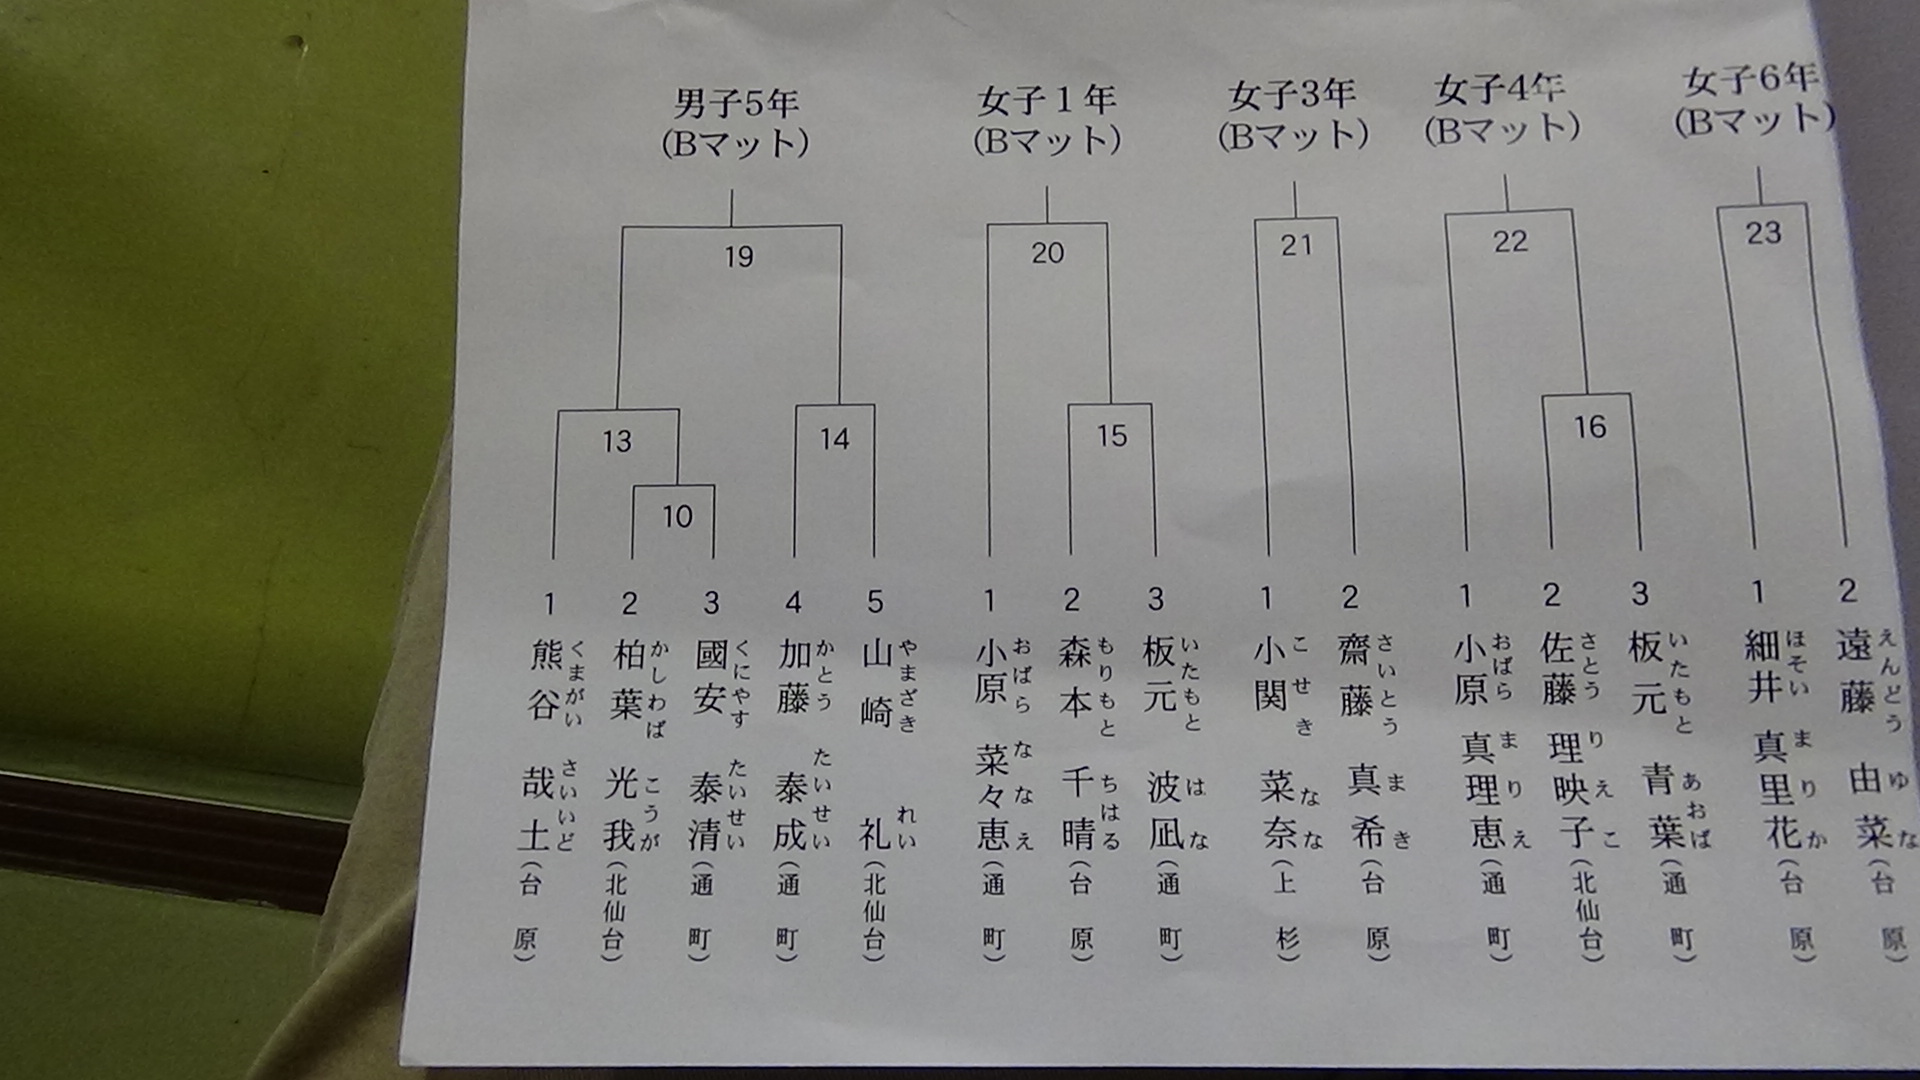 男子5年
(Bマット)
女子1年
(Bマット)
女子3年
(Bマット)
女子4年
(Bマット)
女子6年
(Bマット)
19
20
21
22
23
13
14
15
16
10
1
2
3
4
5
1
2
3
1
2
1
2
3
1
2
熊谷 哉土(台原)
くまがい さいいど
柏葉 光我(北仙台)
かしわば こうが
國安 泰清(通町)
くにやす たいせい
加藤 泰成(通町)
かとう たいせい
山崎 礼(北仙台)
やまざき れい
小原 菜々恵(通町)
おばら ななえ
森本 千晴(台原)
もりもと ちはる
板元 波凪(通町)
いたもと はな
小関 菜奈(上杉)
こせき なな
齋藤 真希(台原)
さいとう まき
小原 真理恵(通町)
おばら まりえ
佐藤 理映子(北仙台)
さとう りえこ
板元 青葉(通町)
いたもと あおば
細井 真里花(台原)
ほそい まりか
遠藤 由菜(台原)
えんどう ゆな